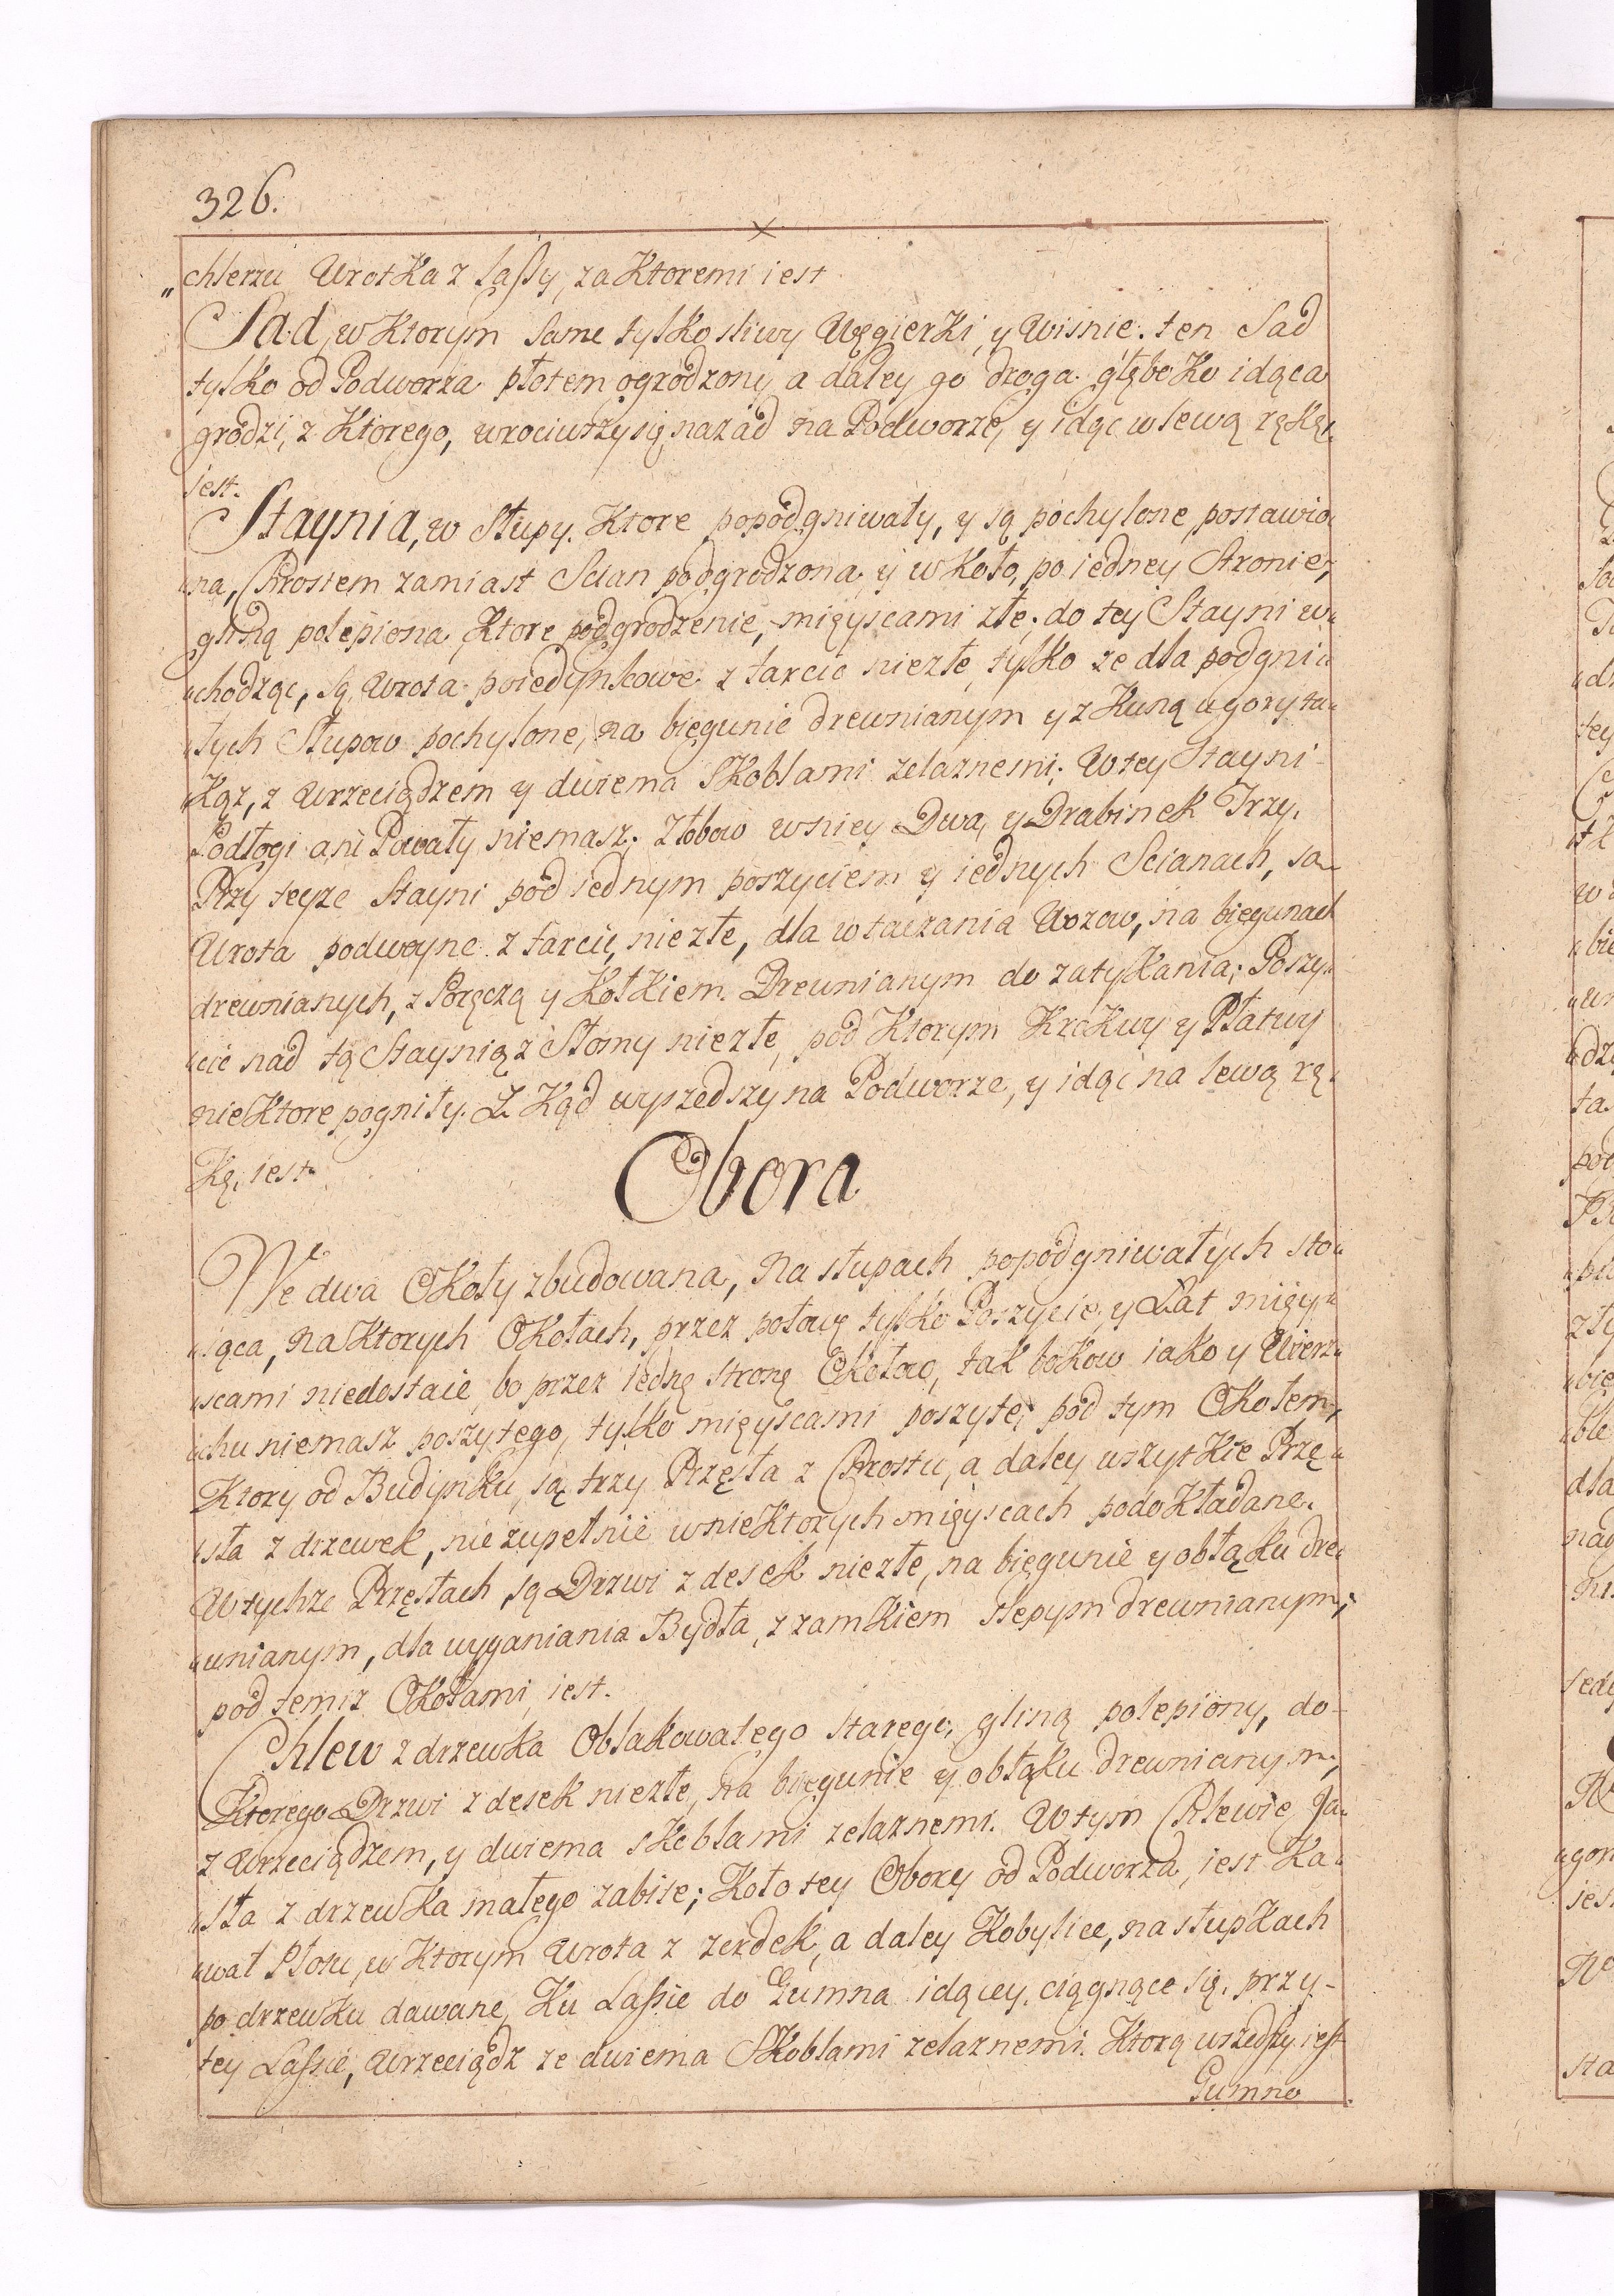 326.
„chlerzu Wrotka z Lassy, za Ktoremi iest
Sad, w Ktorym same tylko sliwy Węgierki, y Wisnie. ten Sad
tylko od Podworza płotem ogrodzony, a daley go droga głęboko idąca
grodzi, z Ktorego, wrociwszy się nazad na Podworze, y idąc w lewą rękę
iest.
Staynia, w Słupy. Ktore popodgniwały, y są pochylone postawio„
„na, Chrostem zamiast Scian podgrodzona y w Koło, po iedney Stronie,
gliną polepiona, Ktore podgrodzenie, mięyscami złe; do tey Stayni w„
„chodząc, są Wrota poiedynkowe z tarcic niezłe, tylko ze dla podgni„
„łych Słupow pochylone, na biegunie drewnianym y z Kuną u gory ta„
„Kąz, z Wrzeciądzem y dwiema Skoblami zelaznemi. W tey Stayni
Podłogi ani Powały niemasz. Złobow w niey Dwa, y Drabinek Trzy.
Przy teyze Stayni pod iednym poszyciem y iednych Scianach, są
Wrota podwoyne z tarcic, niezłe, dla wtaczania Wozow, na biegunach
drewnianych, z Poręczą y Kołkiem Drewnianym do zatykania; Poszy„
„cie nad tą Staynią z Słomy niezłe, pod Ktorym Krokwy y Płatwy
nieKtore pogniły. Z Kąd wyszedszy na Podworze, y idąc na lewą rę„
Kę, iest.
Obora
We dwa Okoły zbudowana, Na słupach popodgniwałych sto„
„iąca, na Ktorych Okołach, przez połowę tylko Poszycie, y Łat mięy„
„scami niedostaie, bo przez iedną stronę Okołow, tak bokow iako y Wierz„
„chu niemasz poszytego, tylko mięyscami poszyte; pod tym Okołem,
Ktory od Budynku, są trzy Przęsła z Chrostu, a daley wszytkie Przę„
„sła z drzewek, nie zupełnie w nieKtorych mięyscach podoKładane.
W tychze Przęsłach, są Drzwi z desek niezłe, na biegunie y obłąku dre„
„wnianym, dla wyganiania Bydła, z zamkiem slepym drewnianym;
pod temiz Okołami iest.
Chlew z drzewka Oblakowatego starego, gliną polepiony, do
Ktorego Drzwi z desek niezłe, na biegunie y obłąku drewnianym;
z Wrzeciądzem, y dwiema sKoblami zelaznemi. W tym Chlewie Ja„
„sła z drzewka małego zabite; Koło tey Obory od Podworza, iest Ka„
„wał Płotu, w Ktorym Wrota z zerdek, a daley Kobylice, na słupkach
po drzewku dawane, Ku Lassie do Gumna idącey, ciągnące się. przy-
tey Lassie, Wrzeciądz ze dwiema Skoblami zelaznemi. Ktorą wszedszy iest
Gumno